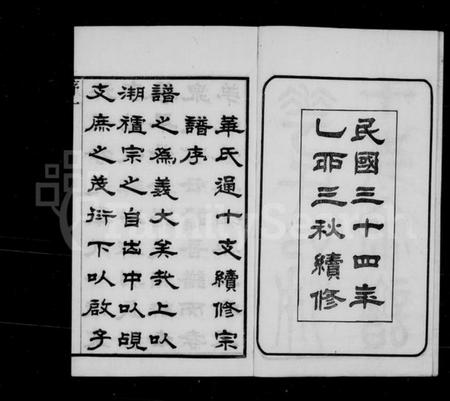 民國三十四年
乙丣三秋續修
華氏通十支續修宗
譜序
譜之爲義大矣哉上以
溯宗之自出中以覘
支庶之茂衍下以啟子
FamilySearch